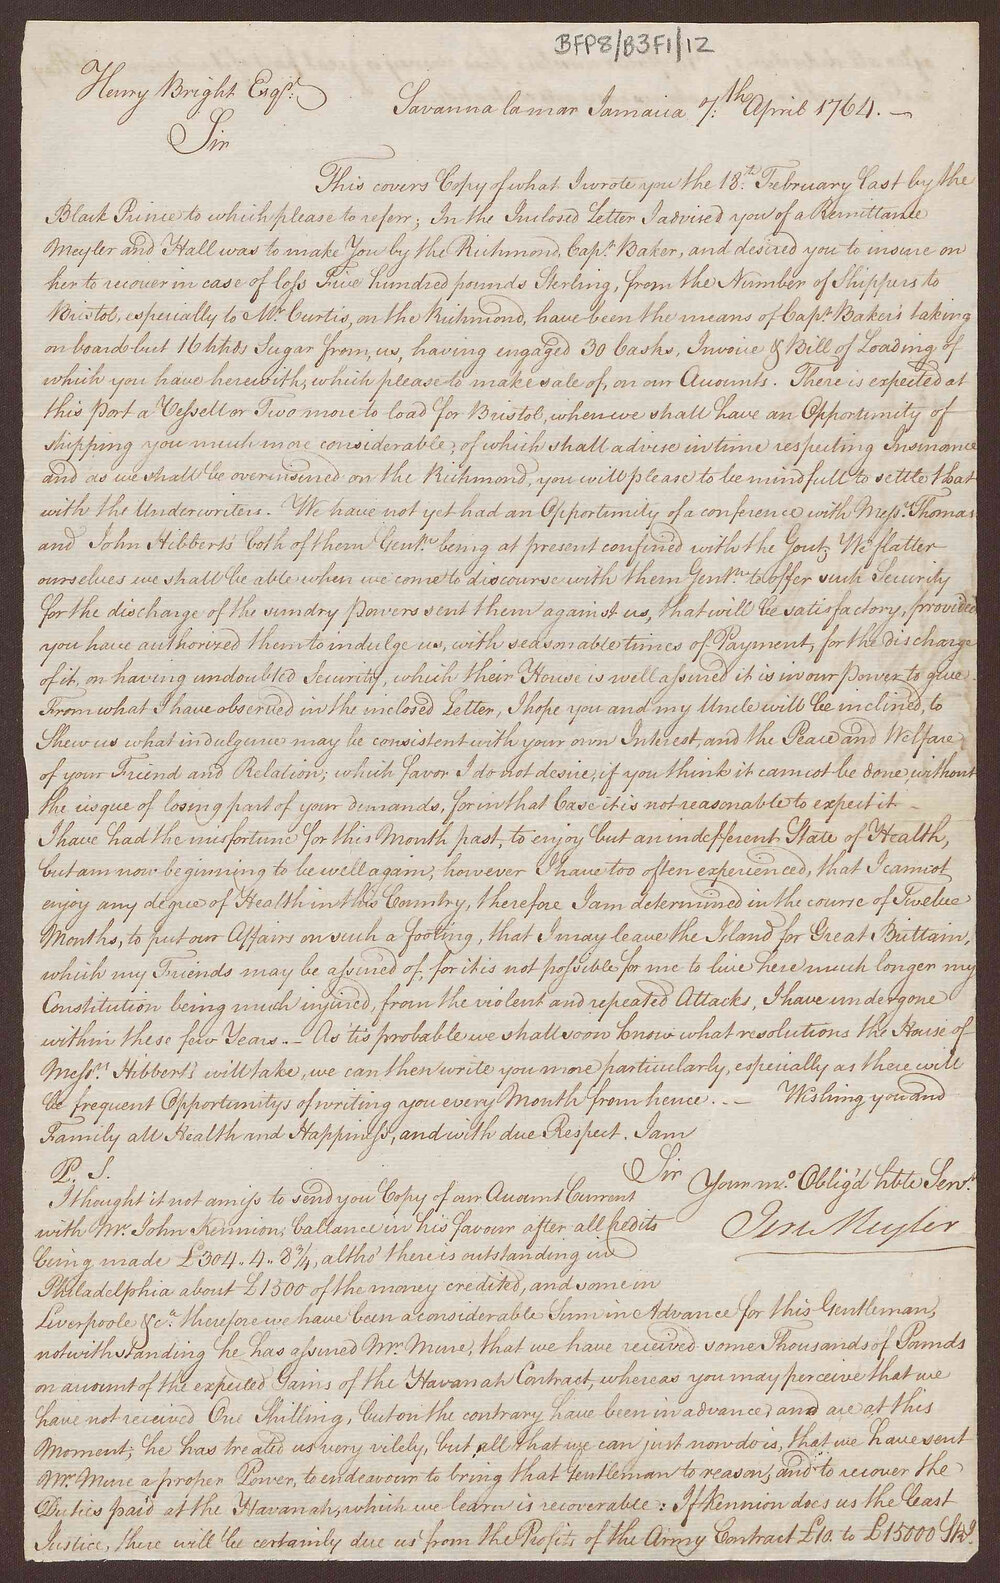 BFP8/B3F1/12
Henry Bright Esqr.
Savanna la mar Jamaica 7th: April 1764. —
Sir
This covers Copy of what I wrote you the 18th: February Last by the
Black Prince to which please to referr; In the Inclosed Letter I advised you of a Remittance
Meyler and Hall was to make You by the Richmond, Capt. Baker, and desired you to insure on
her to recover in case of loss Five hundred pounds Sterling, from the Number of Shippers to
Bristol, especially to Mr. Curtis, on the Richmond, have been the means of Capt. Baker's taking
on board but 16 hhds Sugar from us, having engaged 30 Casks, Invoice & Bill of Loading of
which you have herewith, which please to make sale of, on our Accounts. There is expected at
this port a Vessell or Two more to load for Bristol, when we shall have an Opportunity of
shipping you much more considerable, of which shall advise in time respecting Insurance
and as we shall be overinsured on the Richmond, you will please to be mindfull to settle that
with the Underwriters. We have not yet had an Opportunity of a conference with Messrs. Thomas
and John Hibberts's both of them Gentn. being at present confined with the Gout; We flatter
ourselves we shall be able when we come to discourse with them Gentn. to offer such Security
for the discharge of the sundry Powers sent them against us, that will be satisfactory, provided
you have authorized them to indulge us, with seasonable times of Payment, for the discharge
of it, on having undoubted Security, which their House is well assured it is in our power to give
From what I have observed in the inclosed Letter, I hope you and my Uncle will be inclined, to
Shew us what indulgence may be consistent with your own Interest, and the Peace and Welfare
of your Friend and Relation; which favor I do not desire, if you think it cannot be done, without
the risque of losing part of your demands, for in that Case it is not reasonable to expect it —
I have had the misfortune for this Month past, to enjoy but an indefferent State of Health,
but am now beginning to be well again, however I have too often experienced, that I cannot
enjoy any degree of Health in this Country, therefore I am determined in the course of Twelve
Months, to put our Affairs on such a footing, that I may leave the Island for Great Brittain,
which my Friends may be assured of, for it is not possible for me to live here much longer my
Constitution being much injured, from the violent and repeated Attacks, I have undergone
within these few Years. — As tis probable we shall soon know what resolutions the House of
Messrs. Hibbert's will take, we can then write you more particularly, especially as there will
be frequent Opportunitys of writing you every Month from hence. — Wishing you and
Family all Health and Happiness, and with due Respect. I am
Sir
Your mo. Oblig'd hble Servt.
Jere Meyler
P. S.
I thought it not amiss to send you Copy of our Account Current
with Mr. John Kennion; ballance in his favour after all Credits
being made £304.. 4.. 8¾, altho' there is outstanding in
Philadelphia about £1500 of the money credited, and some in
Liverpoole &ca. therefore we have been a considerable Sum in Advance for this Gentleman,
notwithstanding he has assured Mr. Mure, that we have received some Thousands of Pounds
on account of the expected Gains of the Havanah Contract, whereas you may perceive that we
have not received One Shilling, but on the contrary have been in advance, and are at this
Moment; he has treated us very vilely, but all that we can just now do is, that we have sent
Mr. Mure a proper Power, to endeavour to bring that Gentleman to reason, and to recover the
Duties paid at the Havanah, which we learn is recoverable: If Kennion does us the least
Justice, there will be certainly due us from the Profits of the Army Contract £10. to £15000 Stg.